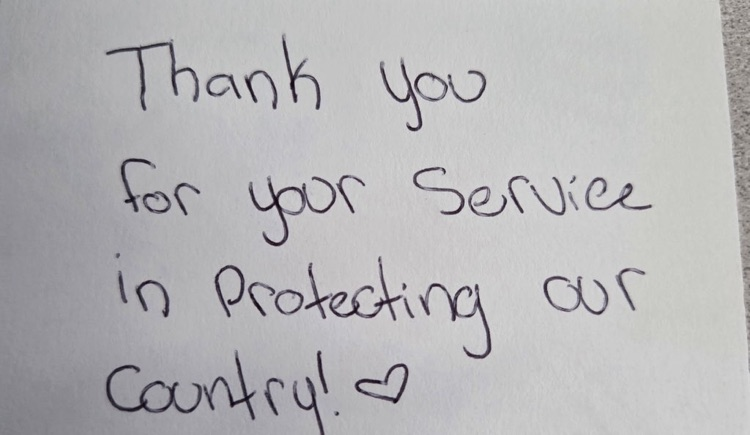 Thank you
for your Service
in Protecting our
Country! ♡